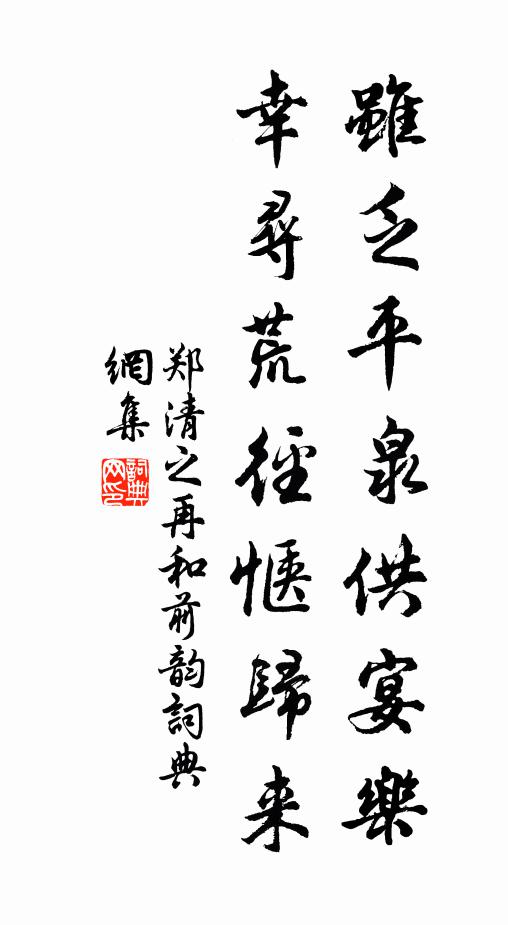 雖乏平泉供宴樂
幸尋荒徑愜歸来
郑清之再和前韵詞典
網集
詞典网印